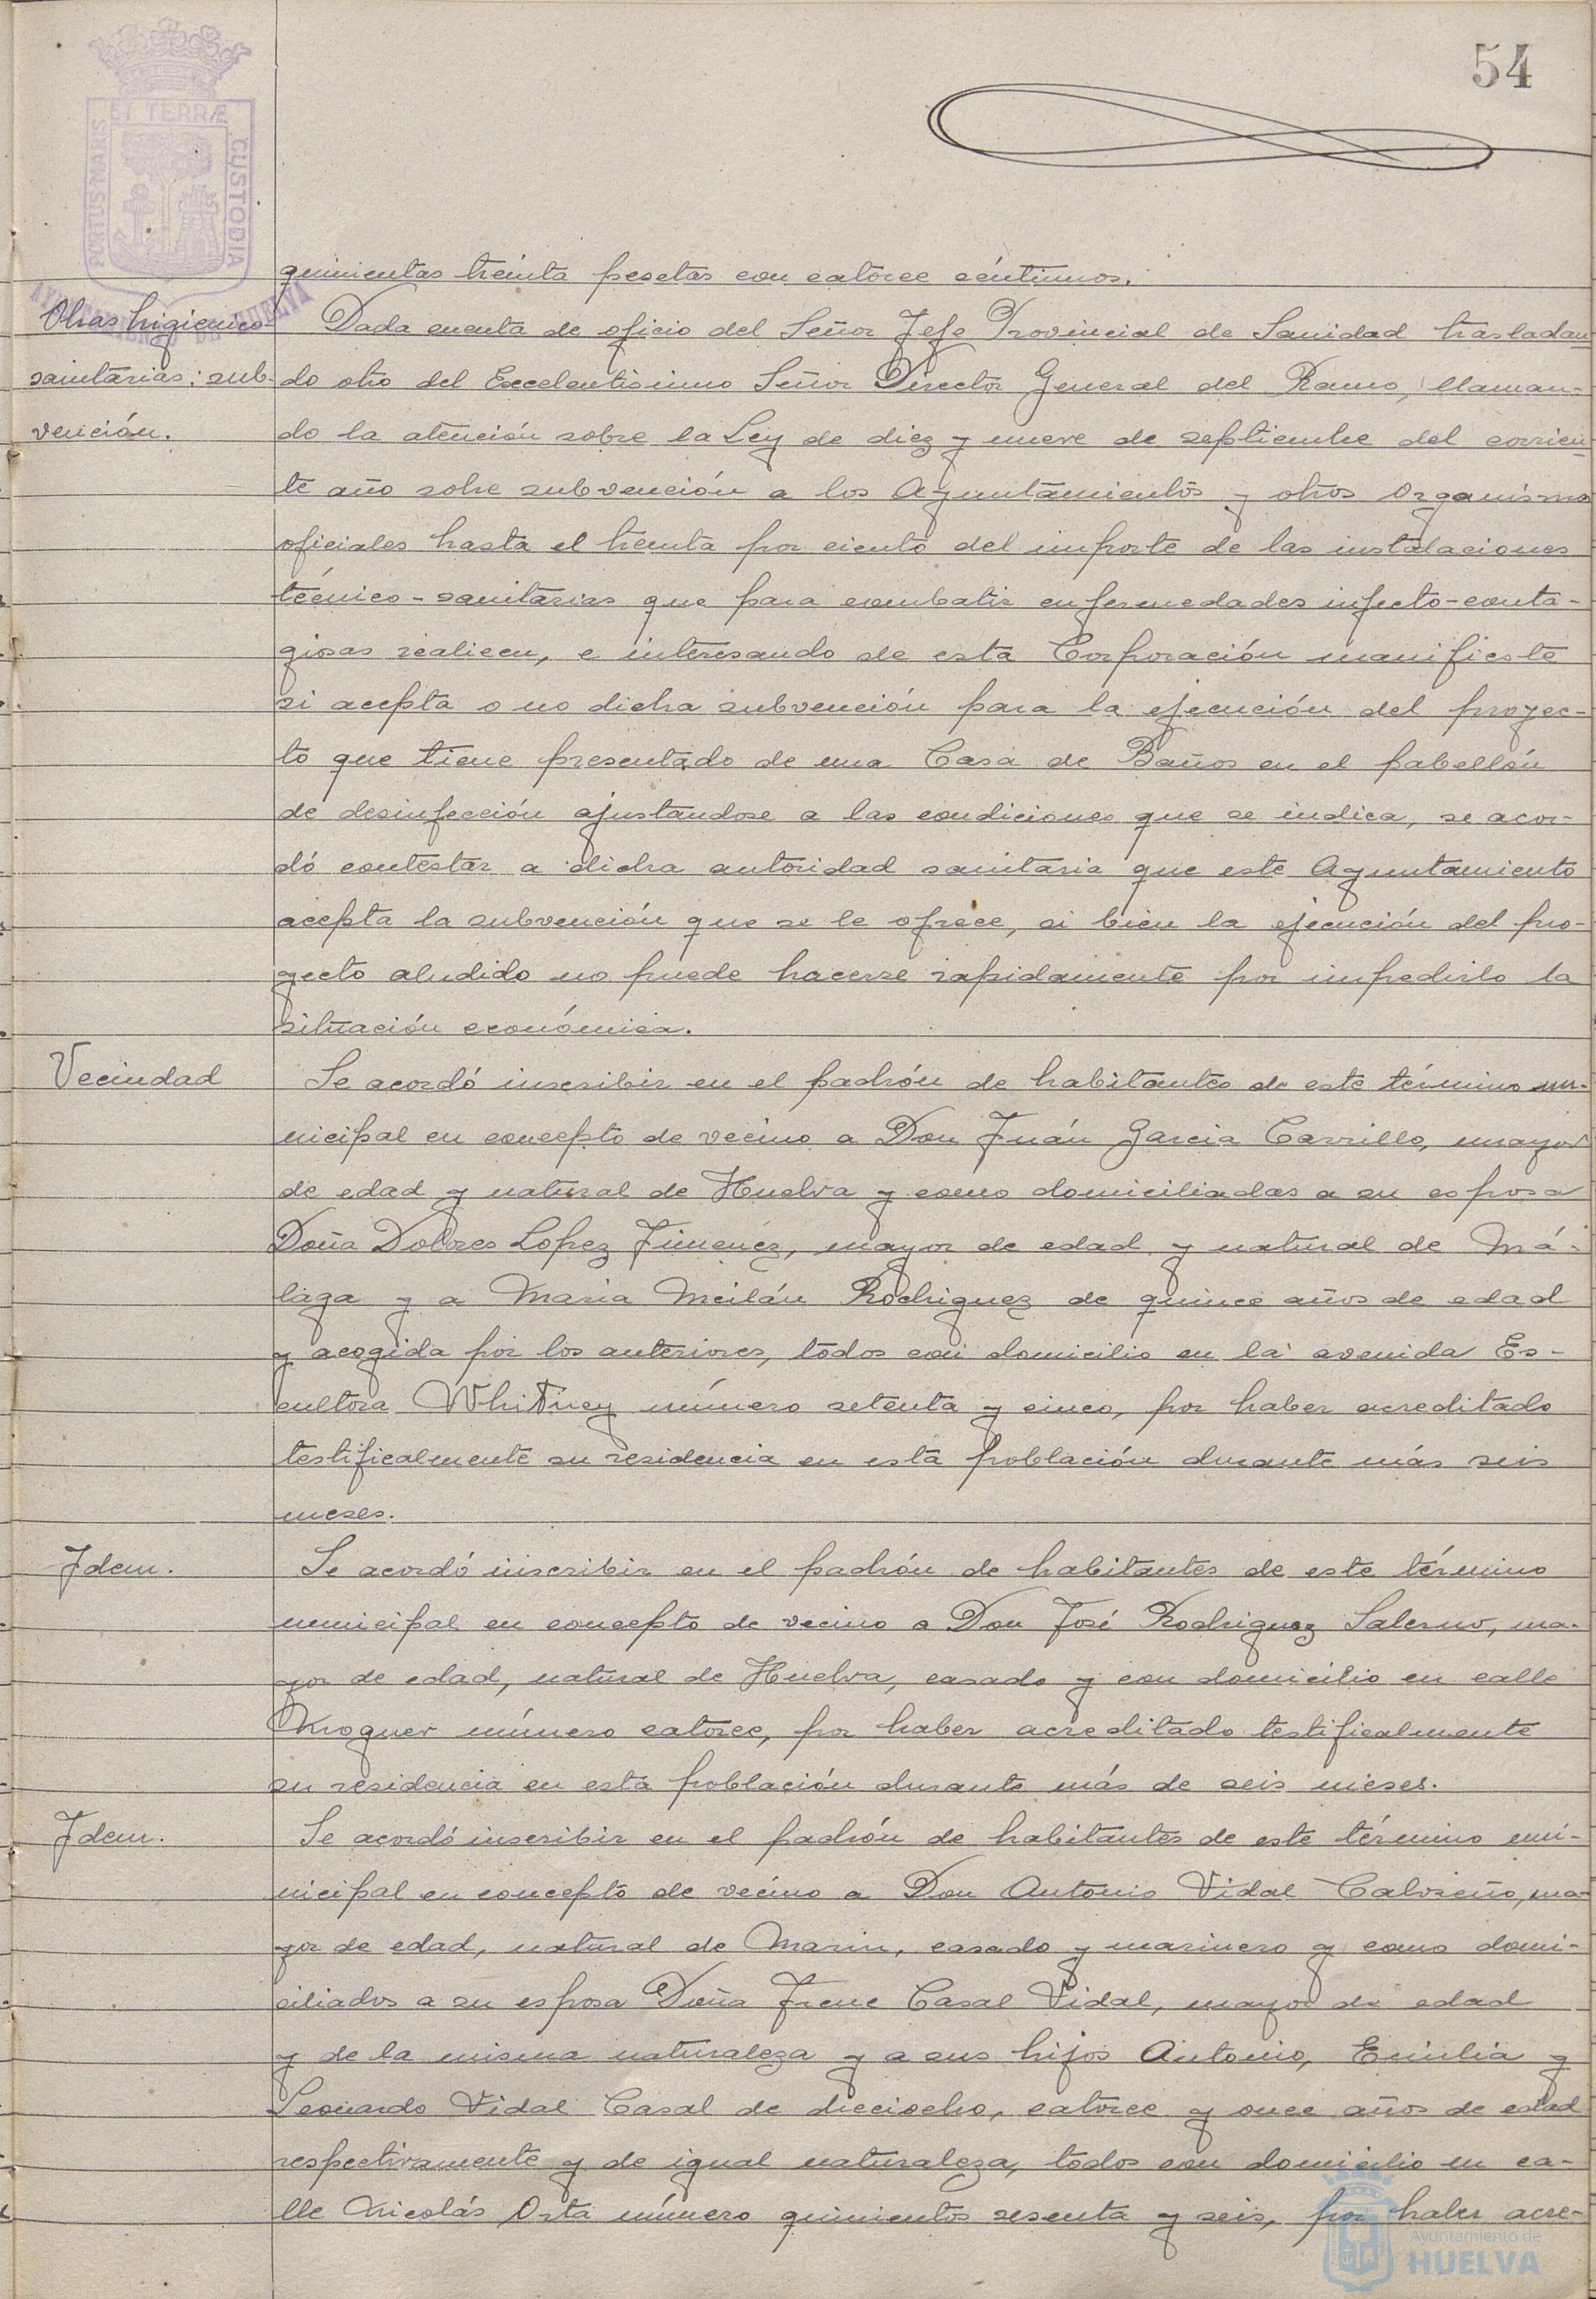 54
PORTUS MARIS ET TERRÆ CUSTODIA
AYUNTAMIENTO DE HUELVA
quinientas treinta pesetas con catorce céntimos.
Obras higienico-
sanitarias: sub-
vención.
Dada cuenta de oficio del Señor Jefe Provincial de Sanidad trasladan-
do otro del Excelentisimo Señor Director General del Ramo, llaman-
do la atención sobre la Ley de diez y nueve de septiembre del corrien-
te año sobre subvención a los Ayuntamientos y otros organismos
oficiales hasta el treinta por ciento del importe de las instalaciones
técnico-sanitarias que para combatir enfermedades infecto-conta-
giosas realicen, e interesando de esta Corporación manifieste
si acepta o no dicha subvención para la ejecución del proyec-
to que tiene presentado de una Casa de Baños en el pabellón
de desinfección ajustandose a las condiciones que se indica, se acor-
dó contestar a dicha autoridad sanitaria que este Ayuntamiento
acepta la subvención que se le ofrece, si bien la ejecución del pro-
yecto aludido no puede hacerse rapidamente por impedirlo la
situación económica.
Vecindad
Se acordó inscribir en el padrón de habitantes de este término mu-
nicipal en concepto de vecino a Don Juán Garcia Carrillo, mayor
de edad y natural de Huelva y como domiciliadas a su esposa
Doña Dolores Lopez Jimenéz, mayor de edad y natural de Má-
laga y a Maria Meilán Rodriguez de quince años de edad
y acogida por los anteriores, todos con domicilio en la avenida Es-
cultora Whitney número setenta y cinco, por haber acreditado
testificalmente su residencia en esta población durante más seis
meses.
Idem.
Se acordó inscribir en el padrón de habitantes de este término
municipal en concepto de vecino a Don José Rodriguez Salerno, ma-
yor de edad, natural de Huelva, casado y con domicilio en calle
Moguer número catorce, por haber acreditado testificalmente
su residencia en esta población durante más de seis meses.
Idem.
Se acordó inscribir en el padrón de habitantes de este término mu-
nicipal en concepto de vecino a Don Antonio Vidal Calvreño, ma-
yor de edad, natural de Marin, casado y marinero y como domi-
ciliados a su esposa Doña Irene Casal Vidal, mayor de edad
y de la misma naturaleza y a sus hijos Antonio, Emilia y
Leonardo Vidal Casal de dieciocho, catorce y once años de edad
respectivamente y de igual naturaleza, todos con domicilio en ca-
lle Nicolás Orta número quinientos sesenta y seis, por haber acre-
Ayuntamiento de
HUELVA